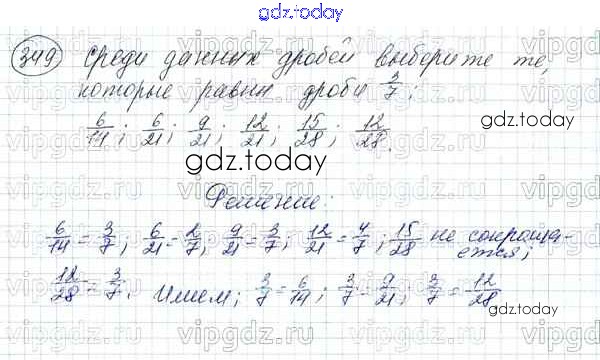 gdz.today
349 Среди данных дробей выберите те,
которые равны дроби 3/7:
6/14; 6/21; 9/21; 12/21; 15/28; 12/28.
gdz.today
gdz.today
Решение:
6/14 = 3/7; 6/21 = 2/7; 9/21 = 3/7; 12/21 = 4/7; 15/28 не сокраща-
ется;
12/28 = 3/7. Имеем; 3/7 = 6/14; 3/7 = 9/21; 3/7 = 12/28
gdz.today
vipgdz.ru